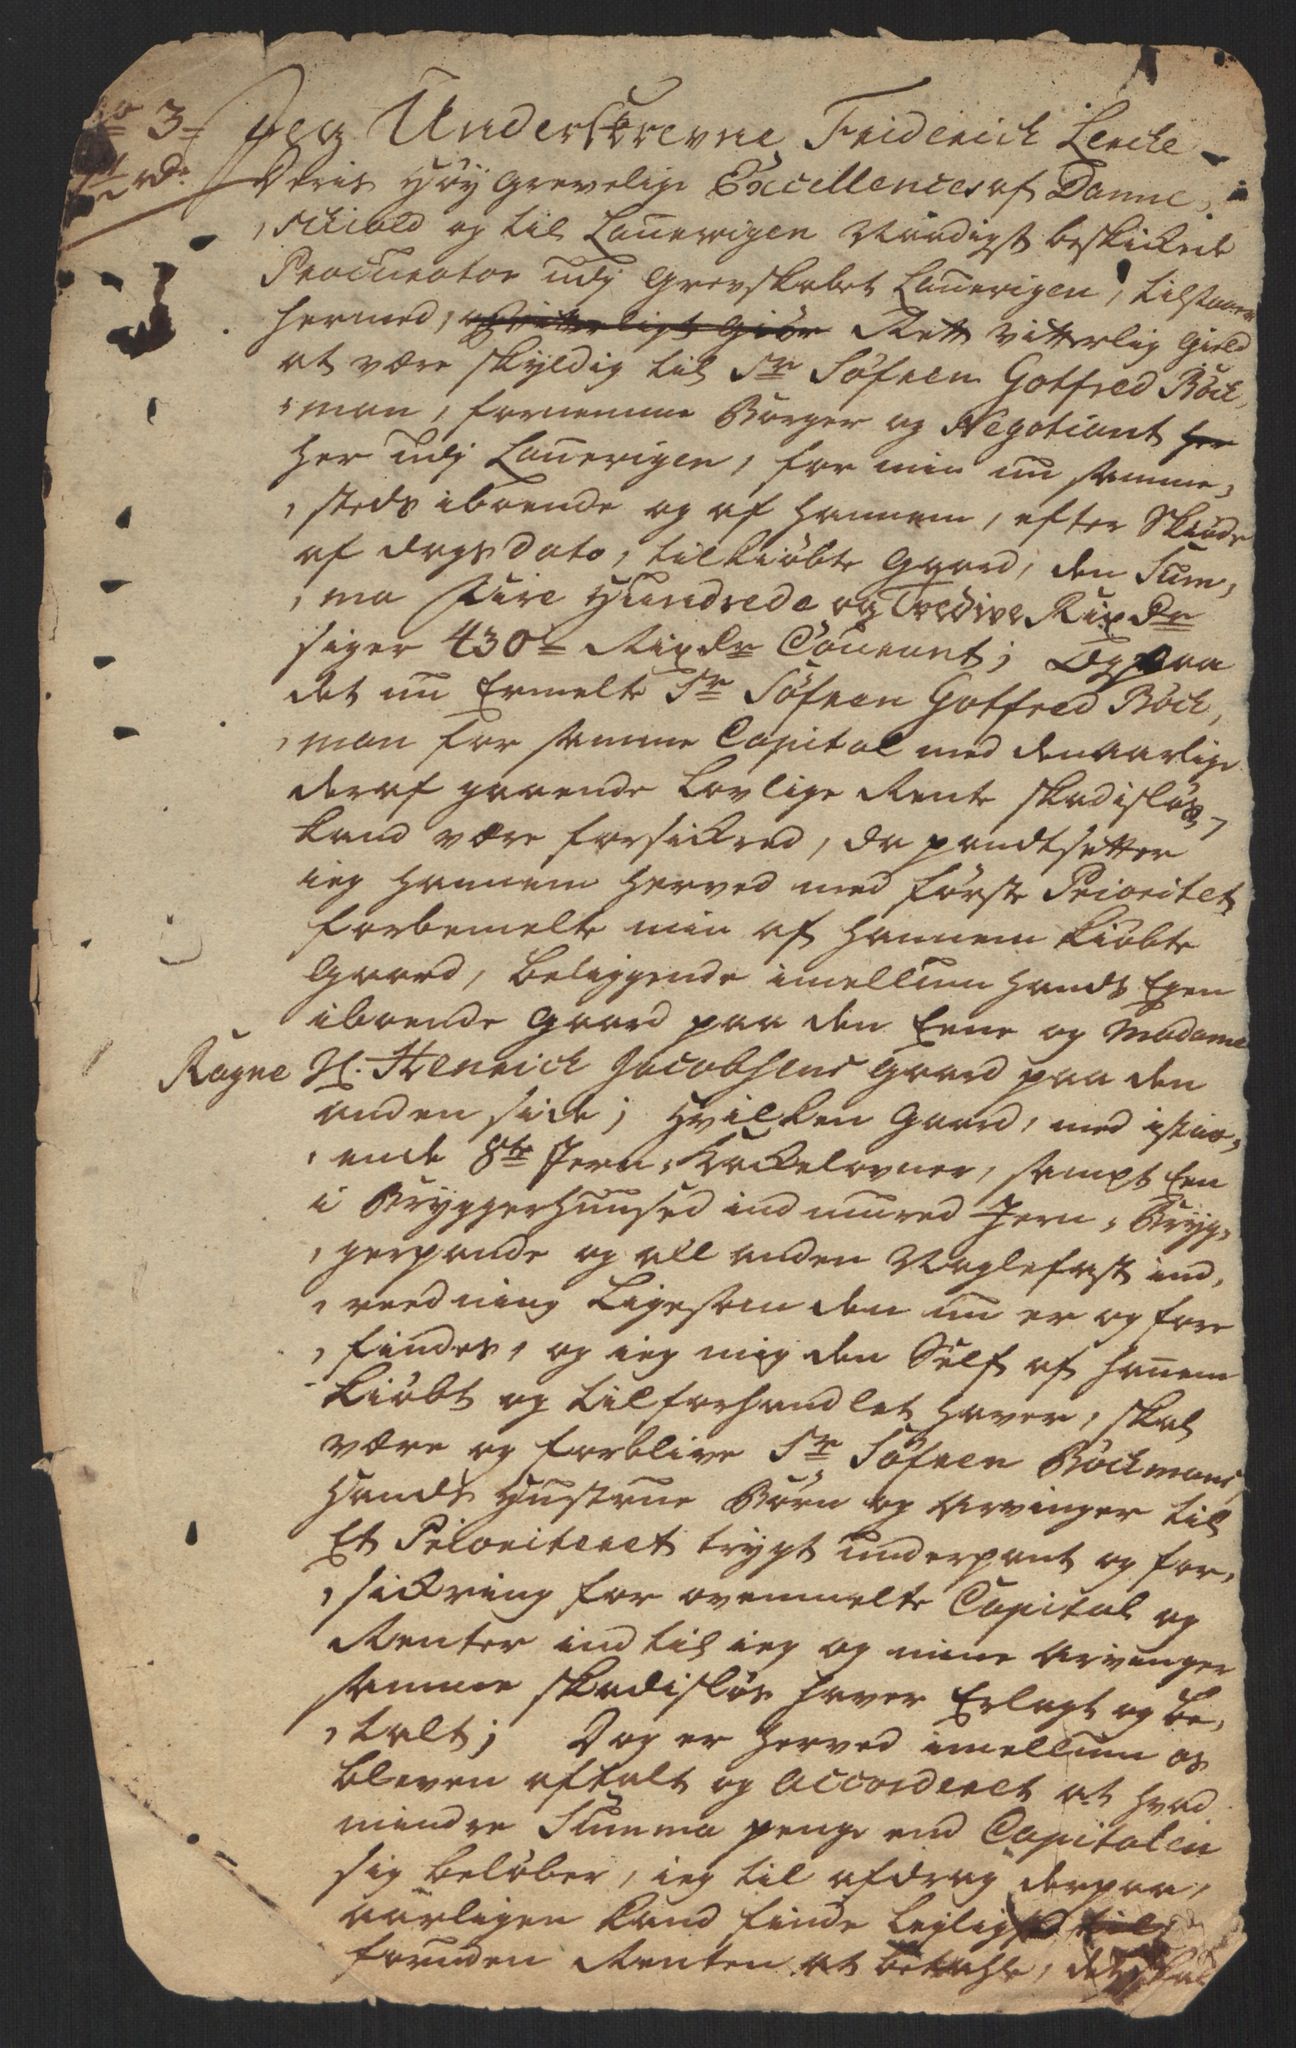 No 3
Jeg Underskrevne Friderich Lercke
Deris Høy Grevelige Excellences af Danne,
,schiold og til Lauervigen Naadigst beskikede
Procurator udj Grevskabet Lauervigen, tilstaaer
hermed, Rett vitterlig Gield
at være skyldig til Sr Søfren Gotfred Böck,
,man, fornemme Borger og Negotiant her
her udj Lauervigen, for min nu samme,
,steds iboende og af hannem, efter Skiøde
af dags dato, tilkiøbte Gaard, den Sum,
,ma Fire Hundrede og Tredive Rixdr
siger 430 Rixdr Courant; Og paa
det nu Ermelte Sr Søfren Gotfred Böck,
,man for samme Capital med den aarlige
deraf gaaende Lovlige Rente skadisløs
kand være forsikred, da pandtsetter
ieg hannem herved med første Prioritet
forbemelte min af hannem kiøbte
Gaard, beliggende imellum hands Egen
iboende Gaard paa den Eene og Madame
Ragne H. Henrich Jacobsens Gaard paa den
anden side; hvilken Gaard, med istaa,
,ende 8te Jern, Kackelovner, sampt Een
i Bryggerhuused indmured Jern, Bryg,
,gerpande og all anden Naglefast ind,
,reedning Ligesom den nu er og fore
,findes, og ieg mig den Self af hanem
kiøbt og tilforhandlet haver, skal
være og forblive Sr Søfren Böckmans
Hands Hustrue Børn og Arvinger til
Et Prioriteret trygt underpant og for,
,sikring for ovenmelte Capital og
Renter ind til ieg og mine Arvinger
samme skadisløs haver Erlagt og be,
,talt; Dog er herved imellum os
bleven aftalt og Accorderet at hvad
mindre Summa penge end Capitalen
sig beløber, ieg til afdrag derpaa,
aarligen kand finde leylighed til
foruden Renten at betahle, det skal